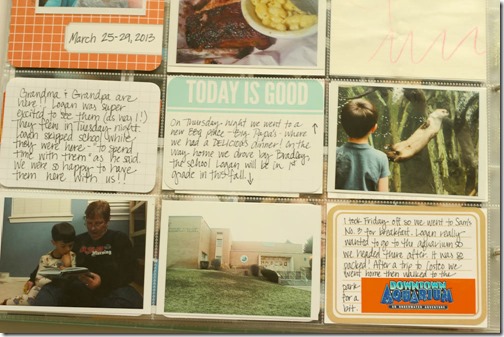 March 25-29, 2013
Grandma & Grandpa are
here!! Logan was super
excited to see them (as was I!)
They flew in Tuesday night.
Logan skipped school while
they were here - "to spend
time with them" as he said.
We were so happy to have
them here with us!!
TODAY IS GOOD
On Thursday night we went to a
new BBQ place - Big Papa's - where
we had a DELICIOUS dinner! On the
way home we drove by Bradley,
the school Logan will be in 1st
grade in this fall.
I took Friday off so we went to Sam's
No. 3 for breakfast. Logan really
wanted to go to the aquarium so
we headed there after. It was so
packed! After a trip to Costco we
went home then walked to the
park
for a
bit.
DOWNTOWN
AQUARIUM
AN UNDERWATER ADVENTURE